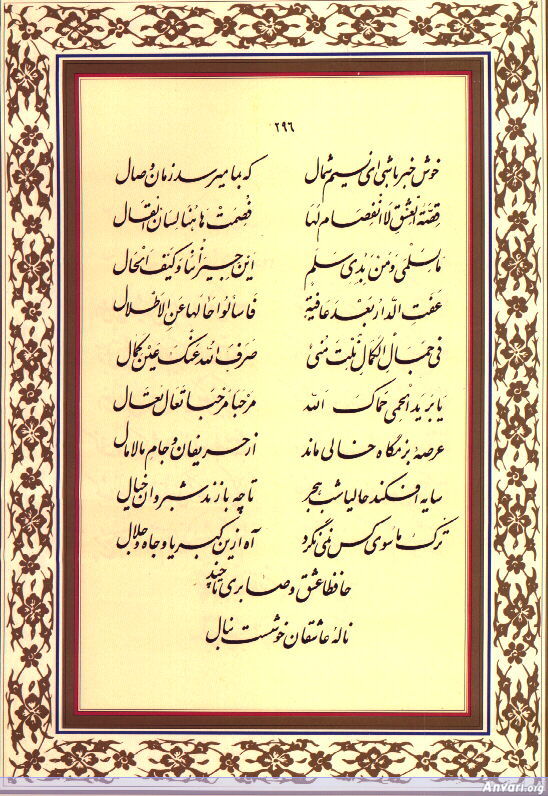 ۲۹۶
خوش خبر باشی ای نسیم شمال که بما میرسد زمان وصال
قِصَّةُ العِشْقِ لَا انْفِصَامَ لَهَا فُصِمَتْ هَا هُنَا لِسَانُ القَالِ
مَا لِسَلْمَى وَمَنْ بِذِی سَلَمٍ أَیْنَ جِیرَانُنَا وَکَیْفَ الحَالُ
عَفَتِ الدَّارُ بَعْدَ عَافِیَةٍ فَاسْأَلُوا حَالَهَا عَنِ الأَطْلَالِ
فِی جَمَالِ الکَمَالِ نِلْتَ مُنًی صَرَفَ اللهُ عَنْکَ عَیْنَ کَمَالِ
یَا بَرِیدَ الحِمَی حَمَاکَ اللَّه مَرْحَبًا مَرْحَبًا تَعَالَ تَعَالْ
عرصهٔ بزمگاه خالی ماند از حریفان و جام مالامال
سایه افکند حالیا شب هجر تا چه بازند شبروان خیال
ترک ما سوی کس نمی نگرد آه ازین کبریا و جاه و جلال
حافظا عشق و صابری تا چند
نالهٔ عاشقان خوشست بنال
Anvari.org